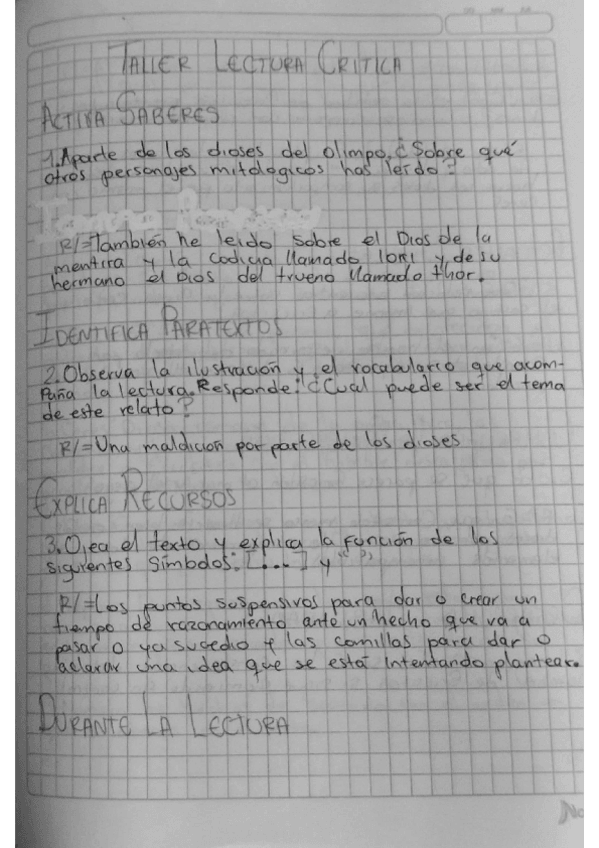 TALLER LECTURA CRITICA
ACTIVA SABERES
1.Aparte de los dioses del olimpo,¿Sobre qué
otros personajes mitologicos has leido?
R/=También he leido sobre el Dios de la
mentira y la codicia llamado loki y de su
hermano el Dios del trueno llamado thor.
IDENTIFICA PARATEXTOS
2.Observa la ilustración y el vocabulario que acom-
paña la lectura.Responde:¿Cual puede ser el tema
de este relato?
R/=Una maldicion por parte de los dioses
EXPLICA RECURSOS
3.Ojea el texto y explica la función de los
siguientes símbolos: [...] y " "
R/=Los puntos suspensivos para dar o crear un
tiempo de razonamiento ante un hecho que va a
pasar o ya sucedio y las comillas para dar o
aclarar una idea que se está intentando plantear.
DURANTE LA LECTURA